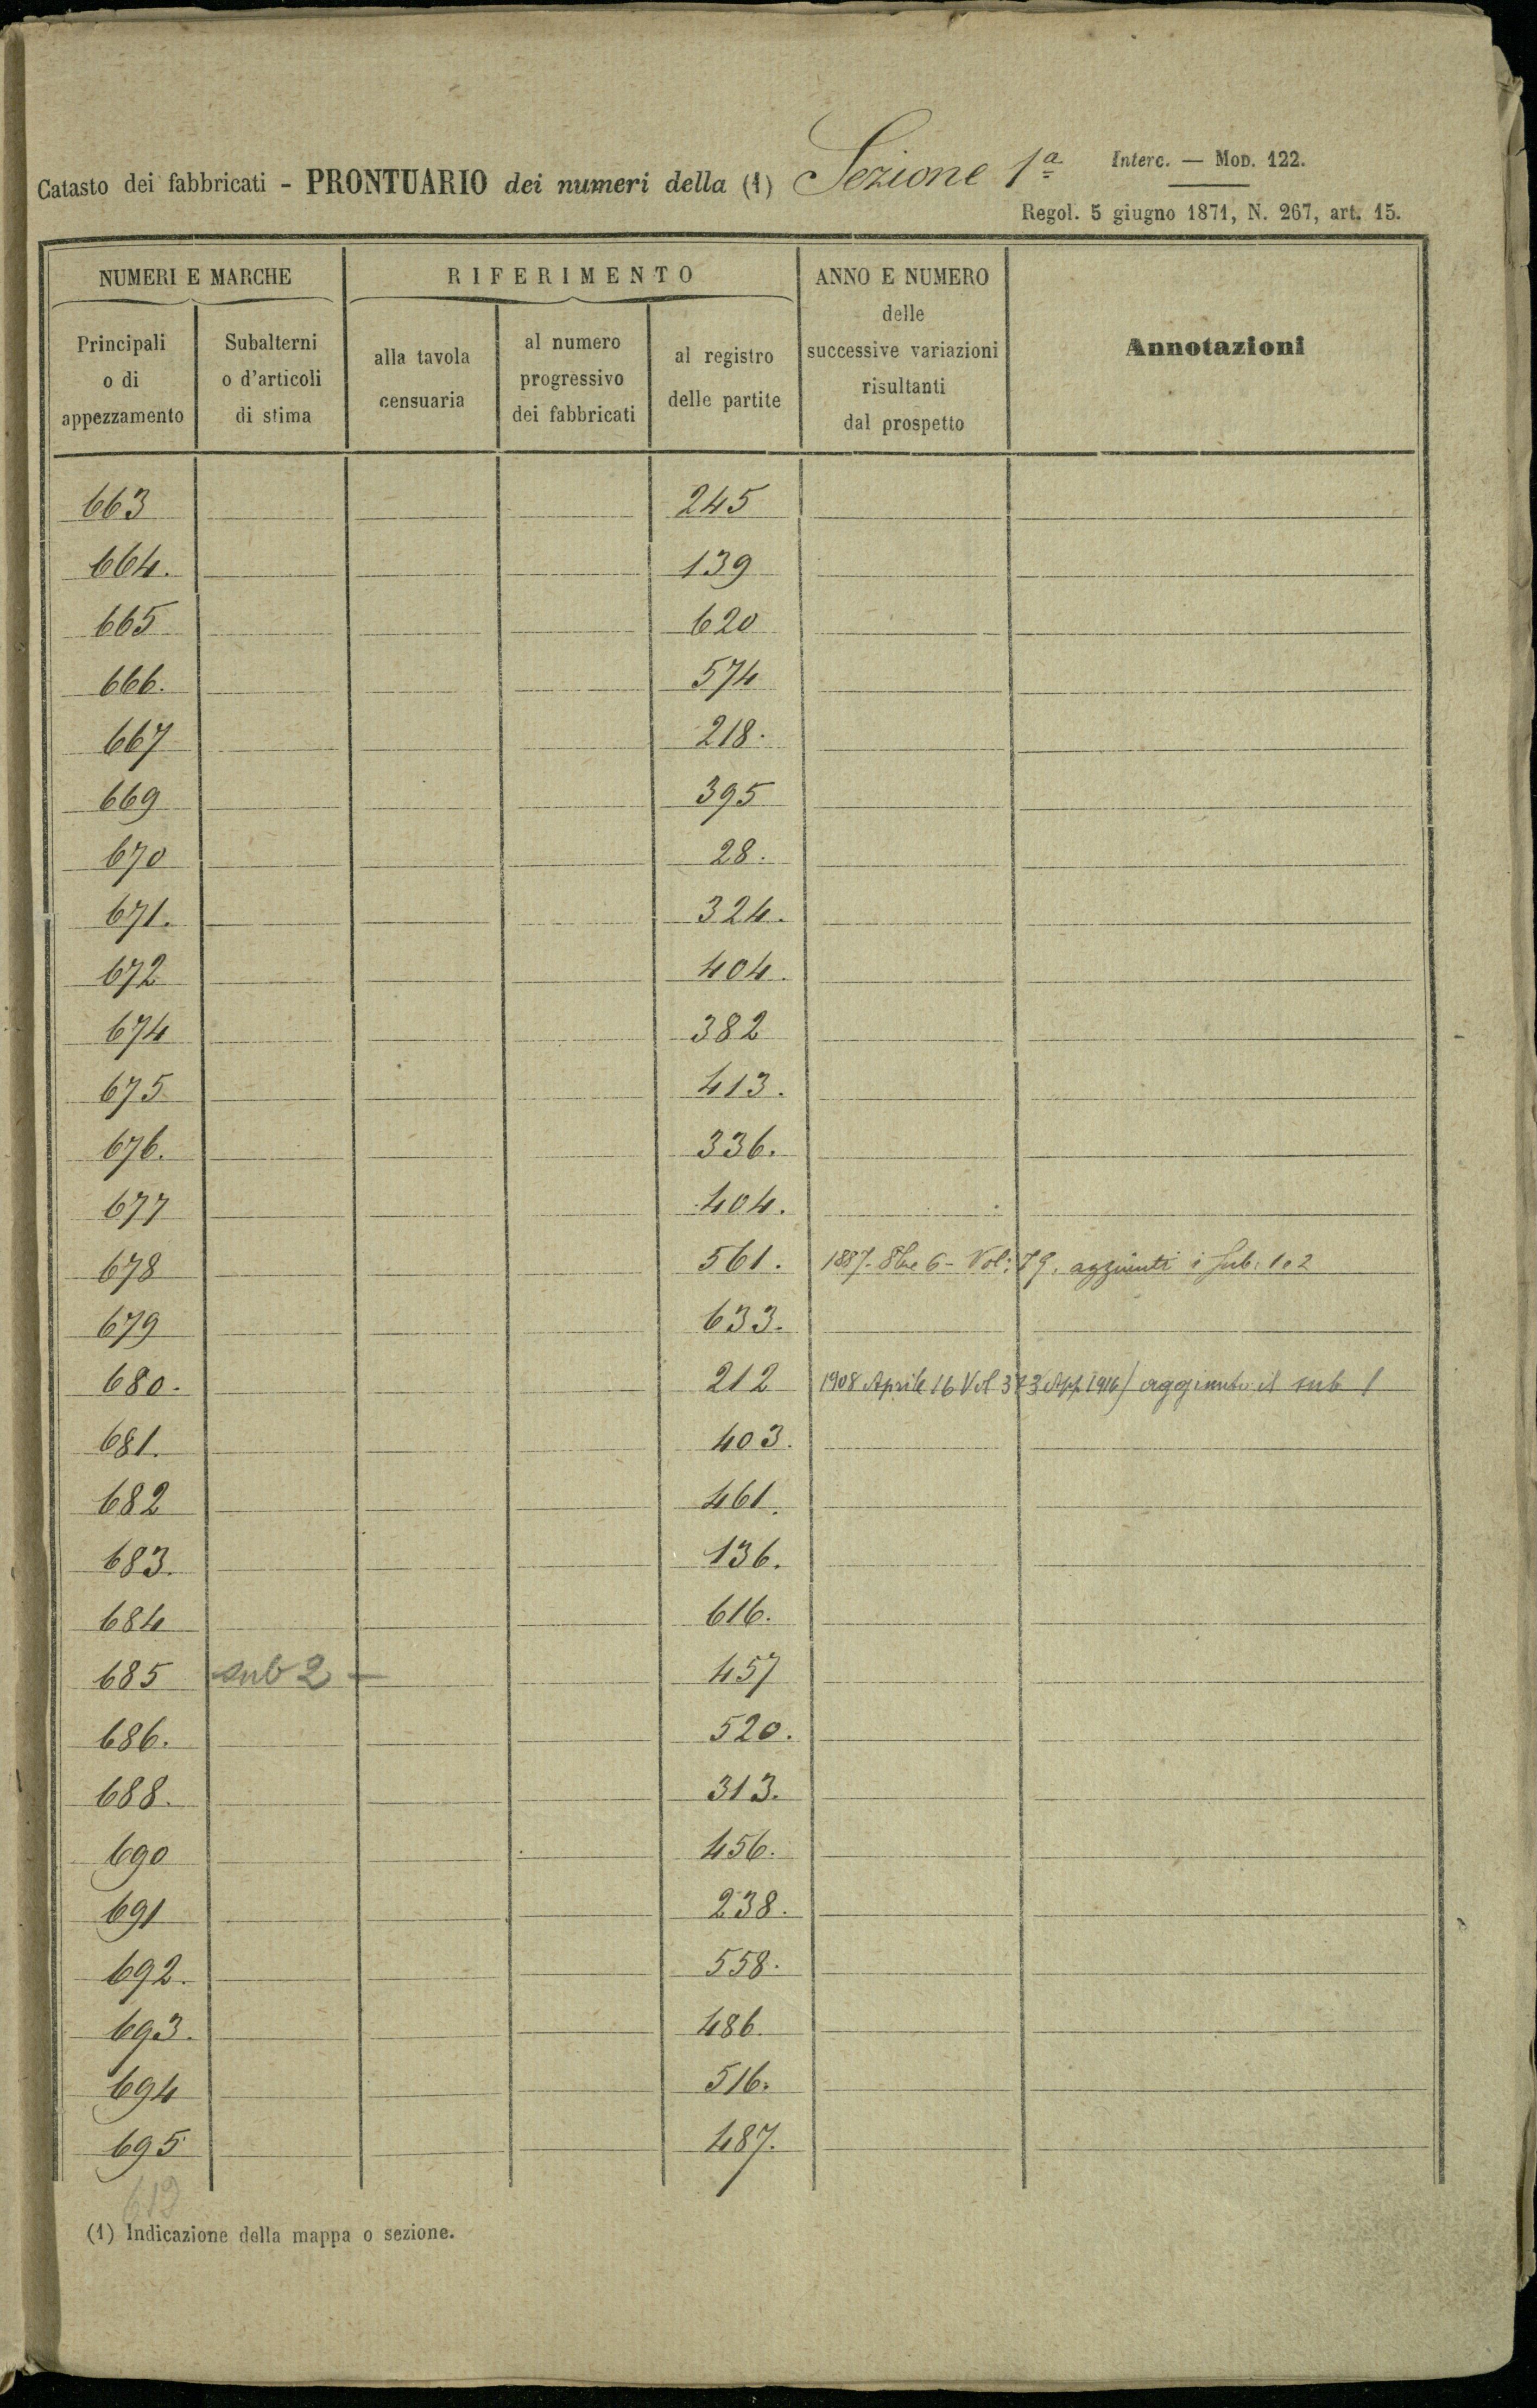 Catasto dei fabbricati - PRONTUARIO dei numeri della (1) Sezione 1ª
Interc. — MOD. 122.
Regol. 5 giugno 1871, N. 267, art. 15.
NUMERI E MARCHE
RIFERIMENTO
ANNO E NUMERO
delle
successive variazioni
risultanti
dal prospetto
Annotazioni
Principali
o di
appezzamento
Subalterni
o d'articoli
di stima
alla tavola
censuaria
al numero
progressivo
dei fabbricati
al registro
delle partite
663 245
664. 139
665 620
666. 574
667 218.
669 395
670 28.
671. 324.
672 404.
674 382
675 413.
676. 336.
677 404.
678 561. 1887. 8bre 6 - Vol: 79. aggiunti i Sub: 1 e 2
679 633.
680. 212 1908 Aprile 16 Vol 373 App. 1916) aggiunto il sub 1
681. 403.
682 461.
683. 136.
684 616.
685 sub 2 — 457
686. 520.
688. 313.
690 456.
691 238.
692. 558.
693. 486.
694 516.
695 487.
(1) Indicazione della mappa o sezione.